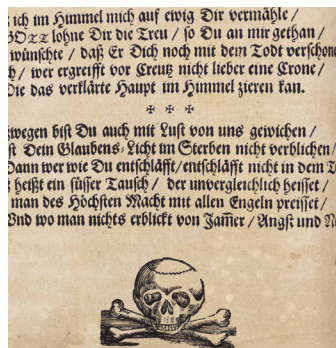 ich im Himmel mich auf ewig Dir vermähle /
GOTT lohne Dir die Treu / so Du an mir gethan /
wünschte / daß Er Dich noch mit dem Todt verschone
/ wer ergreifft vor Creutz nicht lieber eine Crone /
Die das verklärte Haupt im Himmel zieren kan.
wegen bist Du auch mit Lust von uns gewichen /
st Dein Glaubens-Licht im Sterben nicht verblichen /
Dann wer wie Du entschläfft / entschläfft nicht in dem
heißt ein süsser Tausch / der unvergleichlich heisset /
man des Höchsten Macht mit allen Engeln preisset /
Vnd wo man nichts erblickt von Jam̃er / Angst und